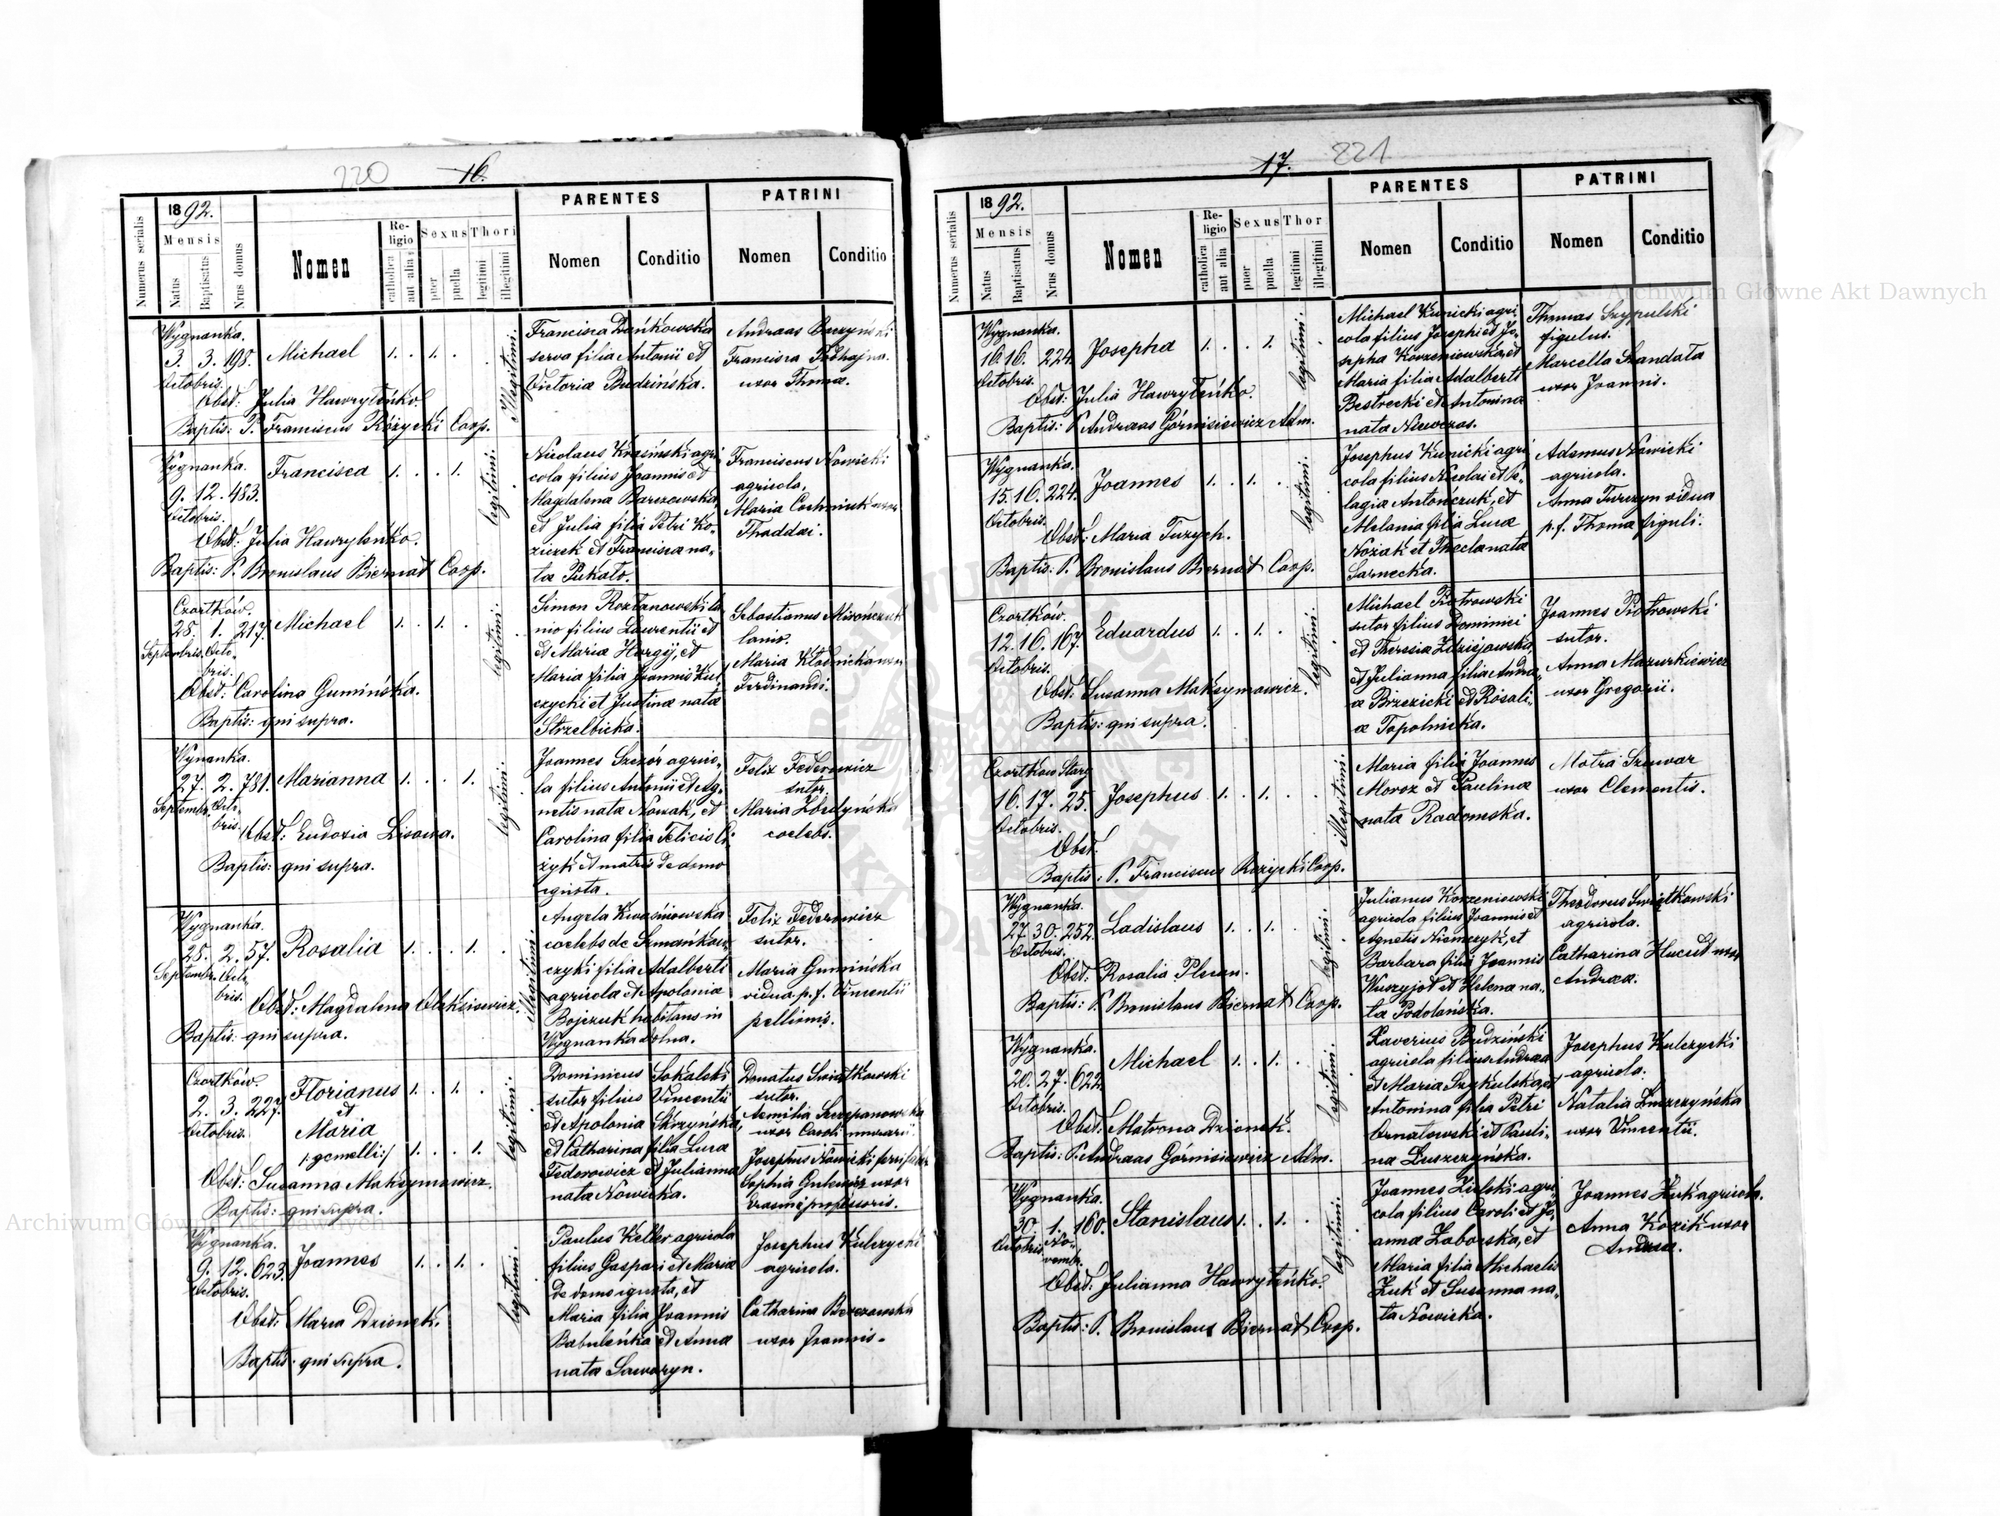 220 16.
1892.
Numerus serialis
Mensis
Natus
Baptisatus
Nrus domus
Nomen
Religio
catholica
aut alia
Sexus
puer
puella
Thori
legitimi
illegitimi
PARENTES
Nomen
Conditio
PATRINI
Nomen
Conditio
Wygnanka.
3. 3. 198. Michael 1. . 1. .
Octobris.
Obst: Julia Hawryleńko.
Baptis: P. Franciscus Różycki Coop.
Illegitimi.
Francisca Dańkowska
serva filia Antonii et
Victoria Budzińska.
Andreas Baczyński
Francisca Podhajna
uxor Thomæ.
Wygnanka.
9. 12. 483. Francisca 1. . . 1.
Octobris.
Obst: Julia Hawryleńko.
Baptis: P. Bronislaus Biernat Coop.
legitimi.
Nicolaus Krasiński agri
cola filius Joannis et
Magdalena Barszowska,
et Julia filia Petri Ko-
ziczek et Francisca na-
ta Pukato.
Franciscus Nowicki
agricola,
Maria Cochniuk uxor
Thaddai.
Czortków.
28. 1. 217. Michael 1. . 1. .
Septembris. Octo-
bris.
Obst: Carolina Gumińska.
Baptis: qui supra.
legitimi.
Simon Roztanowski la
nio filius Laurentii et
et Mariæ Hargij, et
Maria filia Joannis Kul
czycki et Justinæ nata
Strzelbicka.
Sebastianus Mirończuk
lanio.
Maria Kłodnicka uxor
Ferdinandi.
Wynanka.
27. 2. 781. Marianna 1. . . 1.
Septembr. Octo-
bris.
Obst: Eudoxia Lisowa.
Baptis: qui supra.
legitimi.
Joannes Szezór agrico-
la filius Antonii et Ag-
netis nata Nowak, et
Carolina filia Felicis Ci
żyk et matris de domo
ignota.
Felix Federowicz
sutor.
Maria Zbudyńska
coelebs.
Wygnanka.
28. 2. 57. Rosalia 1. . . 1.
Septembr. Octo-
bris.
Obst: Magdalena Oleksiewicz.
Baptis: qui supra.
illegitimi.
Angela Kwaśniowska
coelebs de Szmańkow-
czyki filia Adalberti
agricola et Apolonia
Bojczuk habitans in
Wygnanka dolna.
Felix Federowicz
sutor.
Maria Gumińska
vidua p. f. Vincentii
pellionis.
Czortków.
2. 3. 227. Florianus 1. . 1. .
Octobris. et
Maria
/:gemelli:/ 1. . . 1.
Obst: Susanna Maksymowicz.
Baptis: qui supra.
legitimi.
Dominicus Sokalski
sutor filius Vincentii
et Apolonia Skrzyńska,
et Catharina filia Lucæ
Fedorowicz et Julianna
nata Nowicka.
Donatus Swiątkowski
sutor.
Aemilia Szczepanowska
uxor Caroli murarii.
Josephus Nowicki
Sophia Gulewicz uxor
Erasmi professoris.
Wygnanka.
9. 12. 623. Joannes 1. . 1. .
Octobris.
Obst: Maria Dzionek.
Baptis: qui supra.
legitimi.
Paulus Keller agricola
filius Gaspari et Mariæ
de domo ignota, et
Maria filia Joannis
Babuleńka et Anna
nata Saworyn.
Josephus Kulczycki
agricola.
Catharina Berezowska
uxor Joannis.
17. 221
1892.
Numerus serialis
Mensis
Natus
Baptisatus
Nrus domus
Nomen
Religio
catholica
aut alia
Sexus
puer
puella
Thor
legitimi
illegitimi
PARENTES
Nomen
Conditio
PATRINI
Nomen
Conditio
Wygnanka.
16. 16. 224. Josepha 1. . . 1.
Octobris.
Obst: Julia Hawryleńko.
Baptis: P. Andreas Górnisiewicz Adm.
legitimi.
Michael Kunicki agri
cola filius Josephi et Jo-
sepha Korzeniowska, et
Maria filia Adalberti
Bestrecki et Antonina
nata Niewczas.
Thomas Szypulski
figulus.
Marcella Skandata
uxor Joannis.
Wygnanka.
15. 16. 224. Joannes 1. . 1. .
Octobris.
Obst: Maria Tuzych.
Baptis: P. Bronislaus Biernat Coop.
legitimi.
Josephus Kunicki agri
cola filius Nicolai et Pe-
lagia Antończuk, et
Melania filia Lucæ
Nożak et Thecla nata
Sarnecka.
Adamus Nowicki
agricola.
Anna Turczyn vidua
p. f. Thoma figuli.
Czortków.
12. 16. 167. Eduardus 1. . 1. .
Octobris.
Obst: Susanna Maksymowicz.
Baptis: qui supra.
legitimi.
Michael Piotrowski
sutor filius Dominici
et Theresia Zdziejowska,
et Julianna filia Andre-
æ Brzezicki et Rosali-
æ Topolnicka.
Joannes Piotrowski
sutor.
Anna Mazurkiewicz
uxor Gregorii.
Czortków Stary
16. 17. 25. Josephus 1. . 1. .
Octobris.
Obst.
Baptis: P. Franciscus Rożycki Coop.
illegitimi.
Maria filia Joannes
Moroz et Paulina
nata Radomska.
Motra Szuwar
uxor Clementis.
Wygnanka.
27. 30. 252. Ladislaus 1. . 1. .
Octobris.
Obst. Rosalia Plewn.
Baptis: P. Bronislaus Biernat Coop.
legitimi.
Julianus Korzeniowski
agricola filius Joannis et
Agnetis Niemczyk, et
Barbara filia Joannis
Wuszyjot et Helena na-
ta Podolańska.
Theodorus Swiątkowski
agricola.
Catharina Hucuł uxor
Andreæ.
Wygnanka.
20. 27. 622. Michael 1. . 1. .
Octobris.
Obst. Matrona Dzionek.
Baptis: P. Andreas Górnisiewicz Adm.
legitimi.
Xaverius Budziński
agricola filius Andreæ
et Maria Szykulska, et
Antonina filia Petri
Ornatowski et Pauli-
na Luszczyńska.
Josephus Kulczycki
agricola.
Natalia Luszczyńska
uxor Vincentii.
Wygnanka.
30. 1. 160. Stanislaus 1. . 1. .
Octobris. No-
vembr.
Obst. Julianna Hawryleńko.
Baptis: P. Bronislaus Biernat Coop.
legitimi.
Joannes Zielski agri-
cola filius Caroli et Jo-
annæ Zaborska, et
Maria filia Michaelis
Żuk et Susanna na-
ta Nowicka.
Joannes Żuk agricola.
Anna Kozik uxor
Andreæ.
Archiwum Główne Akt Dawnych
Archiwum Główne Akt Dawnych